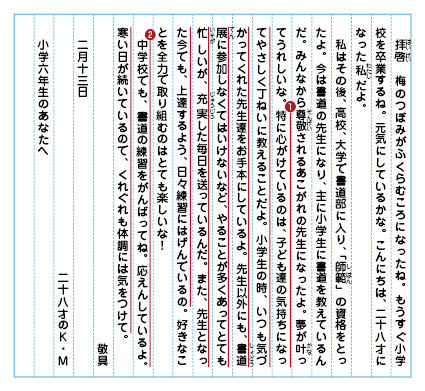 拝啓　梅のつぼみがふくらむころになったね。もうすぐ小学
校を卒業するね。元気にしているかな。こんにちは、二十八才に
なった私だよ。
　私はその後、高校、大学で書道部に入り、「師範」の資格をとっ
たよ。今は書道の先生になり、主に小学生に書道を教えているん
だ。みんなから尊敬されるあこがれの先生になったよ。夢が叶っ
てうれしいな。❶特に心がけているのは、子ども達の気持ちになっ
てやさしく丁ねいに教えることだよ。小学生の時、いつも気づ
かってくれた先生達をお手本にしているよ。先生以外にも、書道
展に参加しなくてはいけないなど、やることが多くあってとても
忙しいが、充実した毎日を送っているんだ。また、先生となっ
た今でも、上達するよう、日々練習にはげんでいるの。好きなこ
とを全力で取り組むのはとても楽しいな！
❷中学校でも、書道の練習をがんばってね。応えんしているよ。
寒い日が続いているので、くれぐれも体調には気をつけて。
敬具
二月十三日
二十八才のＫ・Ｍ
小学六年生のあなたへ